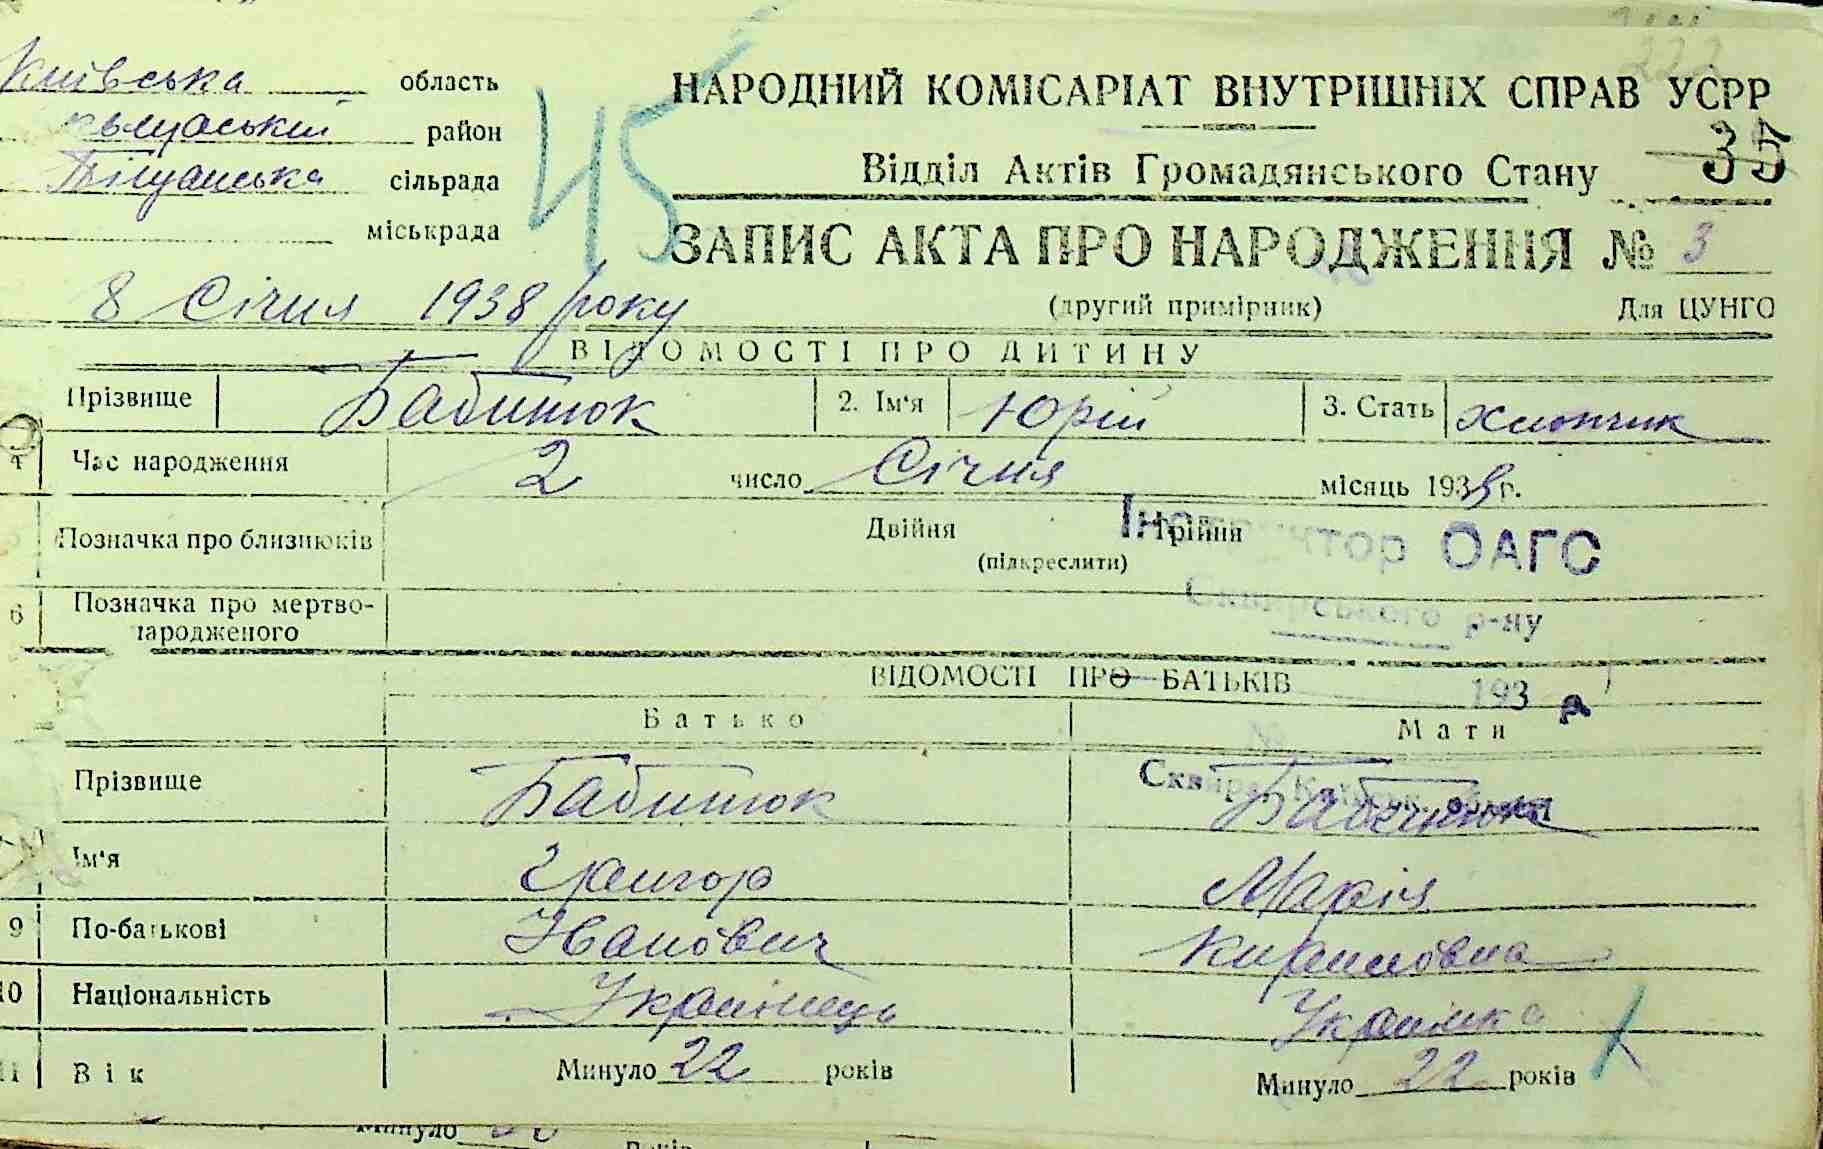 Київська область
район
сільрада
міськрада
45
222
НАРОДНИЙ КОМІСАРІАТ ВНУТРІШНІХ СПРАВ УСРР
Відділ Актів Громадянського Стану 35
ЗАПИС АКТА ПРО НАРОДЖЕННЯ № 3
8 Січня 1938 року (другий примірник) Для ЦУНГО
ВІДОМОСТІ ПРО ДИТИНУ
Прізвище Бабитюк 2. Ім'я Юрій 3. Стать хлопчик
4 Час народження 2 число Січня місяць 1938 г.
Позначка про близнюків Двійня Трійня
(підкреслити)
Інспектор ОАГС
Сквирського р-ну
6 Позначка про мертво-
народженого
ВІДОМОСТІ ПРО БАТЬКІВ
193 р
№
Батько Мати
Сквира, Київськ.
Прізвище Бабитюк
Ім'я Григор Марія
9 По-батькові Іванович Кириловна
10 Національність Українець Українка
11 Вік Минуло 22 років Минуло 22 років
Минуло